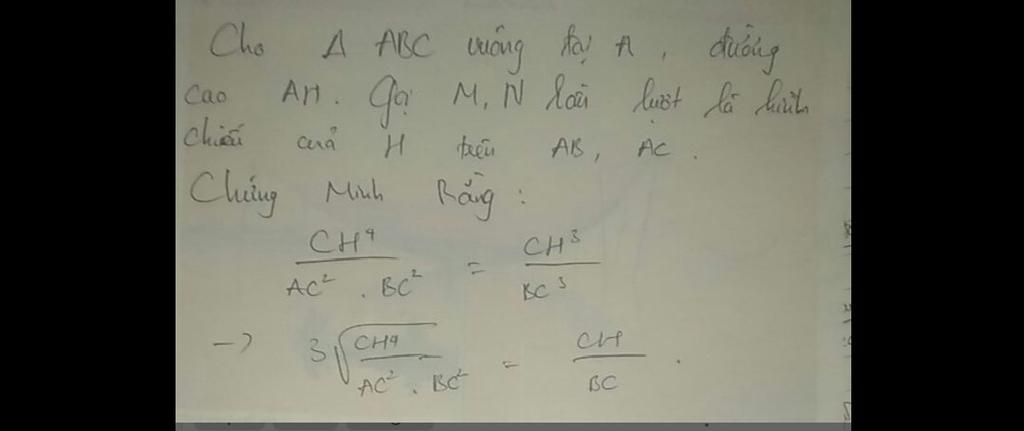 Cho Δ ABC vuông tại A, đường
cao AH. Gọi M, N lần lượt là hình
chiếu của H trên AB, AC.
Chứng Minh Rằng:
CH⁴ / AC² . BC² = CH³ / BC³
→ 3√(CH⁴ / AC² . BC²) = CH / BC .